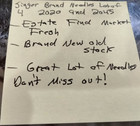 Singer Brand Needles Lot of
4 2020 and 2045
- Estate Find Market
Fresh
- Brand New old
stock
- Great Lot of Needles
Don't Miss out!